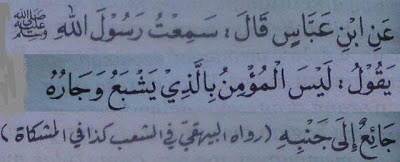 عَنِ ابْنِ عَبَّاسٍ قَالَ: سَمِعْتُ رَسُوْلَ اللهِ ﷺ
يَقُوْلُ: لَيْسَ الْمُؤْمِنُ بِالَّذِيْ يَشْبَعُ وَجَارُهُ
جَائِعٌ إِلَى جَنْبِهِ (رواه البيهقيّ في الشعب كذا في المشكاة)